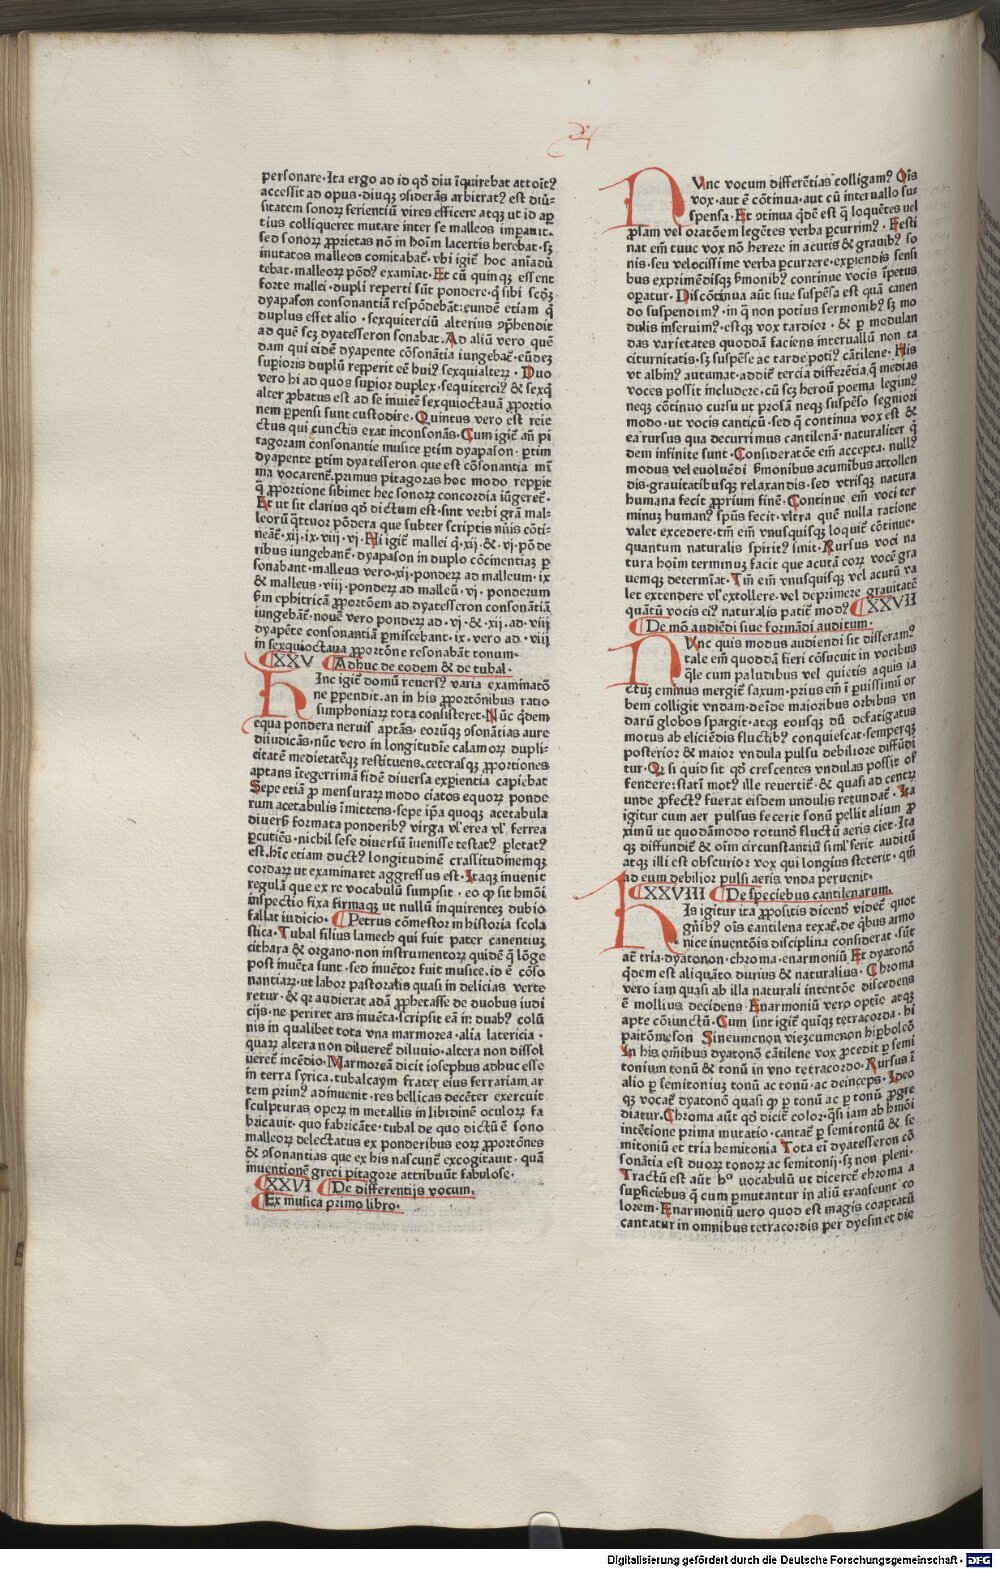 personare·Ita ergo ad id qđ diu īquirebat attoīt?
accessit ad opus·diuqꝫ ɔsiderās arbitrat? est diū-
sitatem sonoꝝ ferientiū vires efficere atqꝫ ut id aꝑ
tius colliqueret mutare inter se malleos imꝑauit·
sed sonoꝝ ꝓprietas nō in hoīm lacertis herebat·sꝫ
mutatos malleos comitabat̄·vbi igit̄ hoc aniadū
tebat·malleoꝝ pōd? examīat·Et cū quinqꝫ essent
forte mallei·dupli reperti sūt pondere·q̄ sibi scd̄ꝫ
dyapason consonantiā respōdebāt:eundē etiam q̄
duplus esset alio·sexquiterciū alterius ɔp̄hendit
ad quē scꝫ dyatesseron sonabat·Ad aliū vero quē
dam qui eidē dyapente cōsonātia iungebat̄·eūdeꝫ
suꝑioris duplū reꝑperit eē hui? sexquialteꝝ·Duo
vero hi ad quos suꝑior duplex·sequiterci? & sexq̄
alter ꝓbatus est ad se inuicē sexquioctauā ꝓportio
nem ꝑpensi sunt custodire·Quintus vero est reie
ctus qui cunctis erat inconsonās·Cum igit̄ añ pi
tagoram consonantie musice ꝑtim dyapason·ꝑtim
dyapente ꝑtim dyatesseron que est cōsonātia mī
ma vocarenť·primus pitagoras hoc modo reꝑꝑit
q̄ ꝓportione sibimet hec sonoꝝ concordia iūgeret̄·
Et ut sit clarius qđ dictum est·sint verbi grā mal-
leorū q̄ttuor pōdera que subter scriptis nūis cōti-
neāt̄·xij·ix·viij·vj·Hi igit̄ mallei q̄·xij·&·vj·pōde
ribus iungebant̄·dyapason in duplo cōcinentiaꝫ ꝑ
sonabant·malleus vero·xij·ponderꝝ ad malleum·ix
& malleus·viij·ponderꝝ ad malleū·vj·ponderum
ẜm ephitricā ꝓportōem ad dyatesseron consonātiā
iungebāt̄·nouē vero ponderꝝ ad·vj·&·xij·ad·viij
dyapēte consonantiā ꝑmiscebant·ix·vero ad·viij
in sexquioctaua ꝓportōne resonabāt tonum·
XXV Adhuc de eodem & de tubal·
HInc igit̄ domū reuers? varia examinatō
ne ꝑpendit·an in his ꝓportōnibus ratio
simphoniaꝝ tota consisteret·Nūc q̄dem
equa pondera neruis aptās·eorūqꝫ ɔsonātias aure
diiudicās·nūc vero in longitudīe calamoꝝ dupli-
citatē medietatēqꝫ restituens·ceterasqꝫ ꝓportiones
aptans ītegerrimā fidē diuersa exꝑientia capiebat
Sepe etiā ꝓ mensurarꝝ modo ciatos equorꝝ ponde
rum acetabulis īmittens·sepe ip̄a quoqꝫ acetabula
diuerẜ formata ponderib? virga vl̓ erea vl̓ ferrea
ꝑcutiēs·nichil sese diuersū īuenisse testat̄? ꝑletat?
est·hīc etiam duct? longitudinē crassitudinemqꝫ
cordarꝝ ut examinaret aggressus est·Itaqꝫ inuenit
regulā que ex re vocabulū sumpsit·eo ꝙ sit hmōi
inspectio fixa firmaqꝫ ut nullū inquirenteꝫ dubio
fallat iudicio·Petrus cōmestor in historia scola
stica·Tubal filius lamech qui fuit pater canentiuꝫ
cithara & organo·non instrumentorꝝ quidē q̄ lōge
post inuēta sunt·sed inuētor fuit musice·id ē cōso
nantiarꝝ·ut labor pastoralis quasi in delicias verte
retur·& qꝛ audierat adā ꝓphetasse de duobus iudi
cijs·ne periret ars inuēta·scripsit eā in duab? colū
nis in qualibet tota vna marmorea·alia latericia·
quarꝝ altera non diluereť diluuio·altera non dissol
uereť incēdio·Marmoreā dicit iosephus adhuc esse
in terra syrica·tubalcaym frater eius ferrariam ar
tem prim? adinuenit·res bellicas decēter exercuit
sculpturas operꝝ in metallis in libidinē oculorꝝ fa
bricauit·quo fabricāte·tubal de quo dictū ē sono
malleorꝝ delectatus ex ponderibus eorꝝ ꝓportōnes
& ɔsonantias que ex his nascunt̄ excogitauit·quā
inuentionē greci pitagore attribuūt fabulose·
XXVI De differentijs vocum·
Ex musica primo libro·
NUnc vocum differētias colligam? Oīs
vox·aut ē cōtinua·aut cū interuallo su-
spensa·Et ɔtinua q̄dē est q̄ loquētes uel
ꝓsam vel oratōem legētes verba ꝑcurrim?·Festi
nat em̄ tunc vox nō herere in acutis & grauib? so
nis·seu velocissime verba ꝑcurrere·exꝑiendis sensi
bus exprimēdisqꝫ ẜmonib? continue vocis īpetus
oꝑatur·Discōtinua aūt siue suspēsa est quā canen
do suspendim?·in q̄ non potius sermonib? sꝫ mo
dulis inseruim?·estqꝫ vox tardior·& ꝑ modulan
das varietates quoddā faciens interuallū non ta
citurnitatis·sꝫ suspēse ac tarde poti? cātilene·His
vt albin? autumat·addit̄ tercia differētia·q̄ medias
voces possit includere·cū scꝫ heroū poema legim?
neqꝫ cōtinuo cursu ut prosam neqꝫ suspēso segniori
modo·ut vocis canticū·sed q̄ continua vox est &
ea rursus qua decurrimus cantilenā·naturaliter q̄
dem infinite sunt·Consideratōe em̄ accepta·null?
modus vel euoluēdi ẜmonibus acumibus attollen
dis·grauitatibusqꝫ relaxandis·sed vtrisqꝫ natura
humana fecit ꝓprium finē·Continue em̄ voci ter
minuꝫ human? sp̄us fecit·vltra quē nulla ratione
valet excedere·tm̄ em̄ vnusquisqꝫ loquit̄ cōtinue·
quantum naturalis spirit? sinit·Rursus voci na
tura hoīm terminuꝫ facit que acutā eorꝝ vocē gra
uemqꝫ determīat·Tm̄ em̄ vnusquisqꝫ vel acutū va
let extendere vl̓ extollere·vel deprimere grauitatē
quātū vocis ei? naturalis patit̄ mod? XXVII
De mō audiēdi siue formādi auditum·
NUnc quis modus audiendi sit disseram?
tale em̄ quoddā fieri cōsueuit in vocibus
q̄le cum paludibus vel quietis aquis ia
ctuꝫ eminus mergit̄ saxum·prius em̄ ī puissimū or
bem colligit vndam·deīde maioribus orbibus vn
darū globos spargit·atqꝫ eousqꝫ dū defatigatus
motus ab eliciēdis fluctib? conquiescat·semperqꝫ
posterior & maior vndula pulsu debiliore diffūdi
tur·Qꝛ si quid sit qđ crescentes vndulas possit of
fendere·statī mot? ille reuertit̄·& quasi ad centꝝ
unde ꝓfect? fuerat eisdem undulis retundat̄·Ita
igitur cum aer pulsus fecerit sonū pellit alium ꝓ
ximū ut quodāmodo rotundū fluctū aeris ciet·Ita
qꝫ diffundit̄ & oīm circumstantiū siml̓ ferit auditū
atqꝫ illi est obscurior vox qui longius steterit·qm̄
ad eum debilior pulsi aeris vnda peruenit·
XXVIII De speciebus cantilenarum·
HIs igitur ita ꝓpositis dicend̄ videt̄ quot
gn̄ib? oīs cantilena texat̄·de q̄bus armo
nice inuentōis disciplina considerat·sūt
aūt tria·dyatonon·chroma·enarmoniū Et dyatonō
q̄dem est aliquāto durius & naturalius·Chroma
vero iam quasi ab illa naturali intentōe discedens
ē mollius decidens·Enarmoniū vero optīe atqꝫ
apte cōiunctū·Cum sint igit̄ quīqꝫ tetracorda·hi
paitōmeson Sineumenon viezeumenon hiꝑboleō
In his om̄ibus dyatonō cātilene vox ꝓcedit ꝑ semi
tonium tonū & tonū in vno tetracordo·Rursus ī
alio ꝑ semitoniuꝫ tonū ac tonū·ac deinceps·Ideo
qꝫ vocat̄ dyatonō quasi ꝙ ꝑ tonū ac ꝑ tonū ꝓgre
diatur·Chroma aūt qđ dicit̄ color·q̄si iam ab hmōi
intētione prima mutatio·cantat̄ ꝑ semitoniū & se
mitoniū et tria hemitonia Tota ei dyatesseron cō
sonātia est duorꝝ tonorꝝ ac semitonij·sꝫ non pleni·
Tractū est aūt hº uocabulū ut diceret̄ chroma a
suꝑficiebus q̄ cum ꝑmutantur in aliū transeunt co
lorem·Enarmoniū uero quod est magis coaptatū
cantatur in omnibus tetracordis per dyesin et die
Digitalisierung gefördert durch die Deutsche Forschungsgemeinschaft - DFG